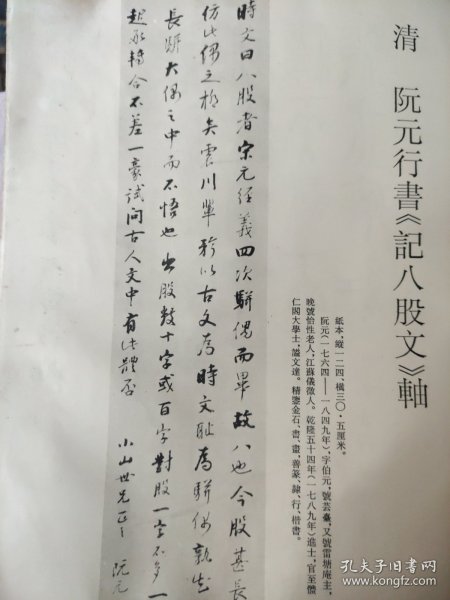 清　阮元行書《記八股文》軸
紙本，縱一二四、橫三〇·五厘米。
阮元（一七六四——一八四九年），字伯元，號芸臺，又號雷塘庵主，
晚號怡性老人，江蘇儀徵人。乾隆五十四年（一七八九年）進士，官至體
仁閣大學士，謚文達。精鑒金石、書、畫，善篆、隸、行、楷書。
時文曰八股者宋元經義四次駢偶而畢故八也今股甚長
仿此偶之極矣雲川輩矜以古文為時文恥為駢偶孰知
長股大偶之中而不悟也出股數十字或百字對股一字不多一
起承轉合不差一豪試問古人文中有此體否
小山世兄正之　阮元
孔夫子旧书网